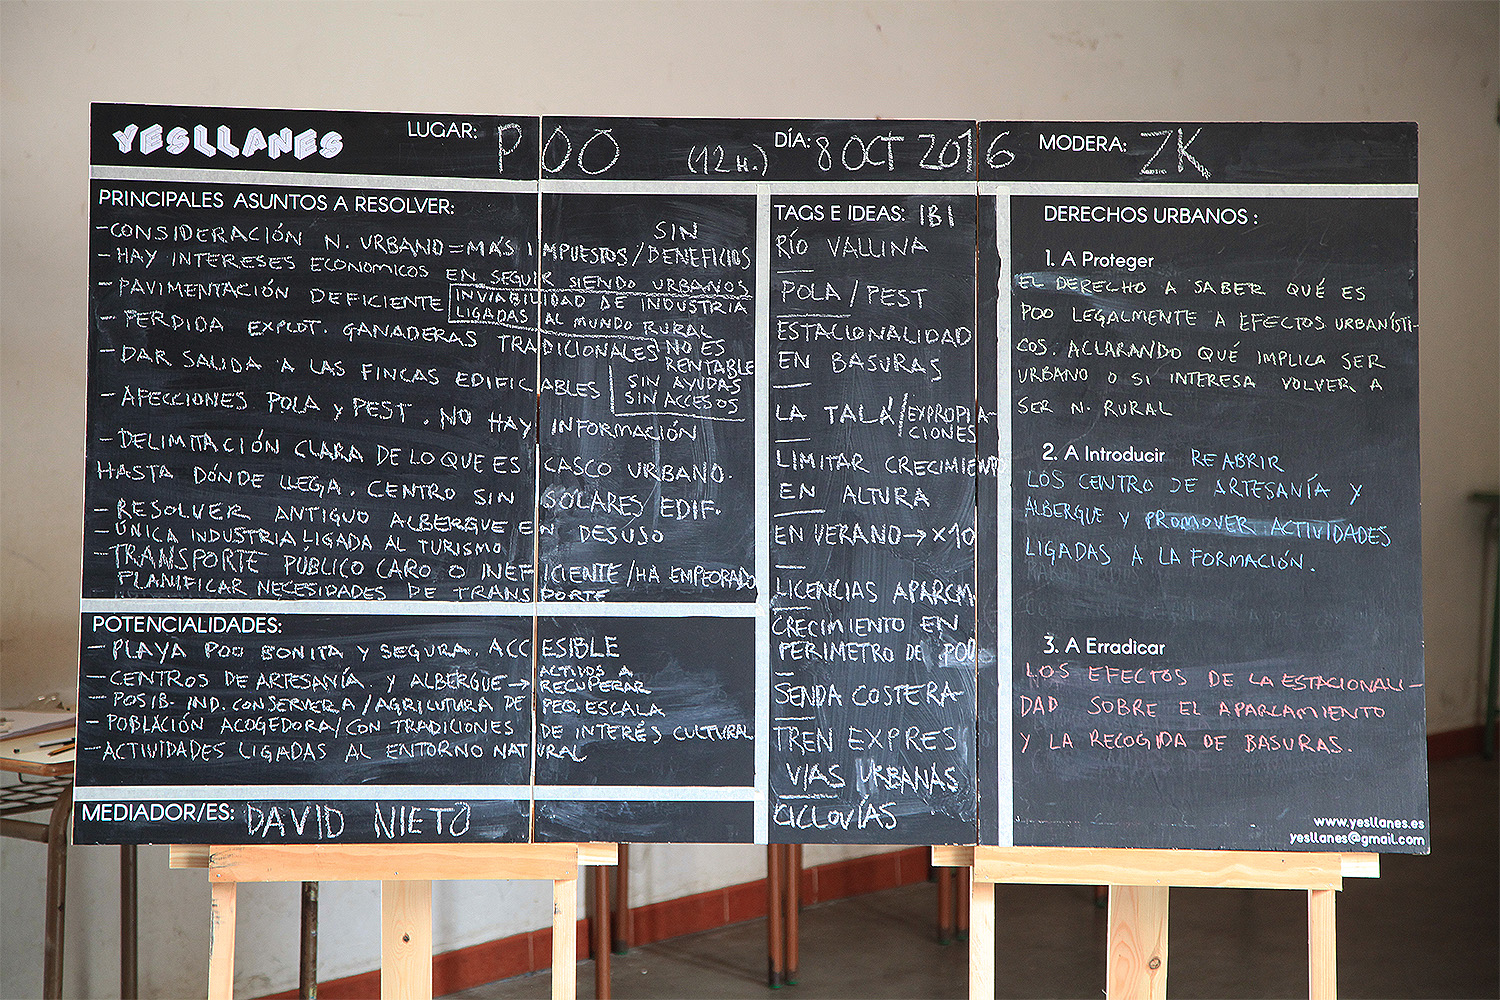 YESLLANES
LUGAR: POO (12 H.)
DÍA: 8 OCT 2016
MODERA: ZK
PRINCIPALES ASUNTOS A RESOLVER:
-CONSIDERACIÓN N. URBANO = MÁS IMPUESTOS / SIN BENEFICIOS
-HAY INTERESES ECONOMICOS EN SEGUIR SIENDO URBANOS
-PAVIMENTACIÓN DEFICIENTE
INVIABILIDAD DE INDUSTRIA
LIGADAS AL MUNDO RURAL
-PERDIDA EXPLOT. GANADERAS TRADICIONALES
NO ES
RENTABLE
SIN AYUDAS
SIN ACCESOS
-DAR SALIDA A LAS FINCAS EDIFICABLES
-AFECCIONES POLA y PEST. NO HAY INFORMACIÓN
-DELIMITACIÓN CLARA DE LO QUE ES CASCO URBANO.
HASTA DÓNDE LLEGA. CENTRO SIN SOLARES EDIF.
-RESOLVER ANTIGUO ALBERGUE EN DESUSO
-ÚNICA INDUSTRIA LIGADA AL TURISMO
-TRANSPORTE PÚBLICO CARO O INEFICIENTE / HA EMPEORADO
PLANIFICAR NECESIDADES DE TRANSPORTE
POTENCIALIDADES:
-PLAYA POO BONITA Y SEGURA. ACCESIBLE
-CENTROS DE ARTESANÍA Y ALBERGUE → ACTIVOS A
RECUPERAR
-POSIB. IND. CONSERVERA / AGRICLUTURA DE PEQ. ESCALA
-POBLACIÓN ACOGEDORA / CON TRADICIONES DE INTERÉS CULTURAL
-ACTIVIDADES LIGADAS AL ENTORNO NATURAL
MEDIADOR/ES: DAVID NIETO
TAGS E IDEAS: IBI
RÍO VALLINA
POLA / PEST
ESTACIONALIDAD
EN BASURAS
LA TALÁ / EXPROPIA-
CIONES
LIMITAR CRECIMIENTO
EN ALTURA
EN VERANO → X10
LICENCIAS APARCM
CRECIMIENTO EN
PERIMETRO DE POO
SENDA COSTERA
TREN EXPRES
VIAS URBANAS
CICLOVÍAS
DERECHOS URBANOS :
1. A Proteger
EL DERECHO A SABER QUÉ ES
POO LEGALMENTE A EFECTOS URBANÍSTI-
COS. ACLARANDO QUÉ IMPLICA SER
URBANO O SI INTERESA VOLVER A
SER N. RURAL
2. A Introducir REABRIR
LOS CENTRO DE ARTESANÍA Y
ALBERGUE Y PROMOVER ACTIVIDADES
LIGADAS A LA FORMACIÓN.
3. A Erradicar
LOS EFECTOS DE LA ESTACIONALI-
DAD SOBRE EL APARCAMIENTO
Y LA RECOGIDA DE BASURAS.
www.yesllanes.es
yesllanes@gmail.com